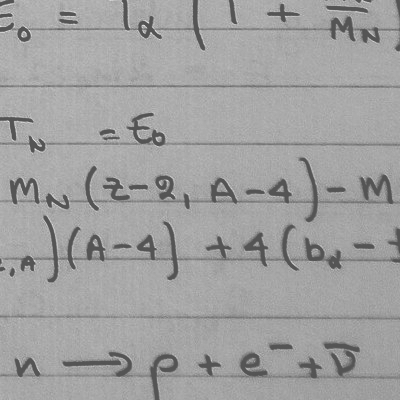 E₀ = T_α (1 + M_N)
T_N = E₀
M_N (z-2, A-4) - M
z,A )(A-4) + 4(b_α -
n → p + e⁻ + ν̅